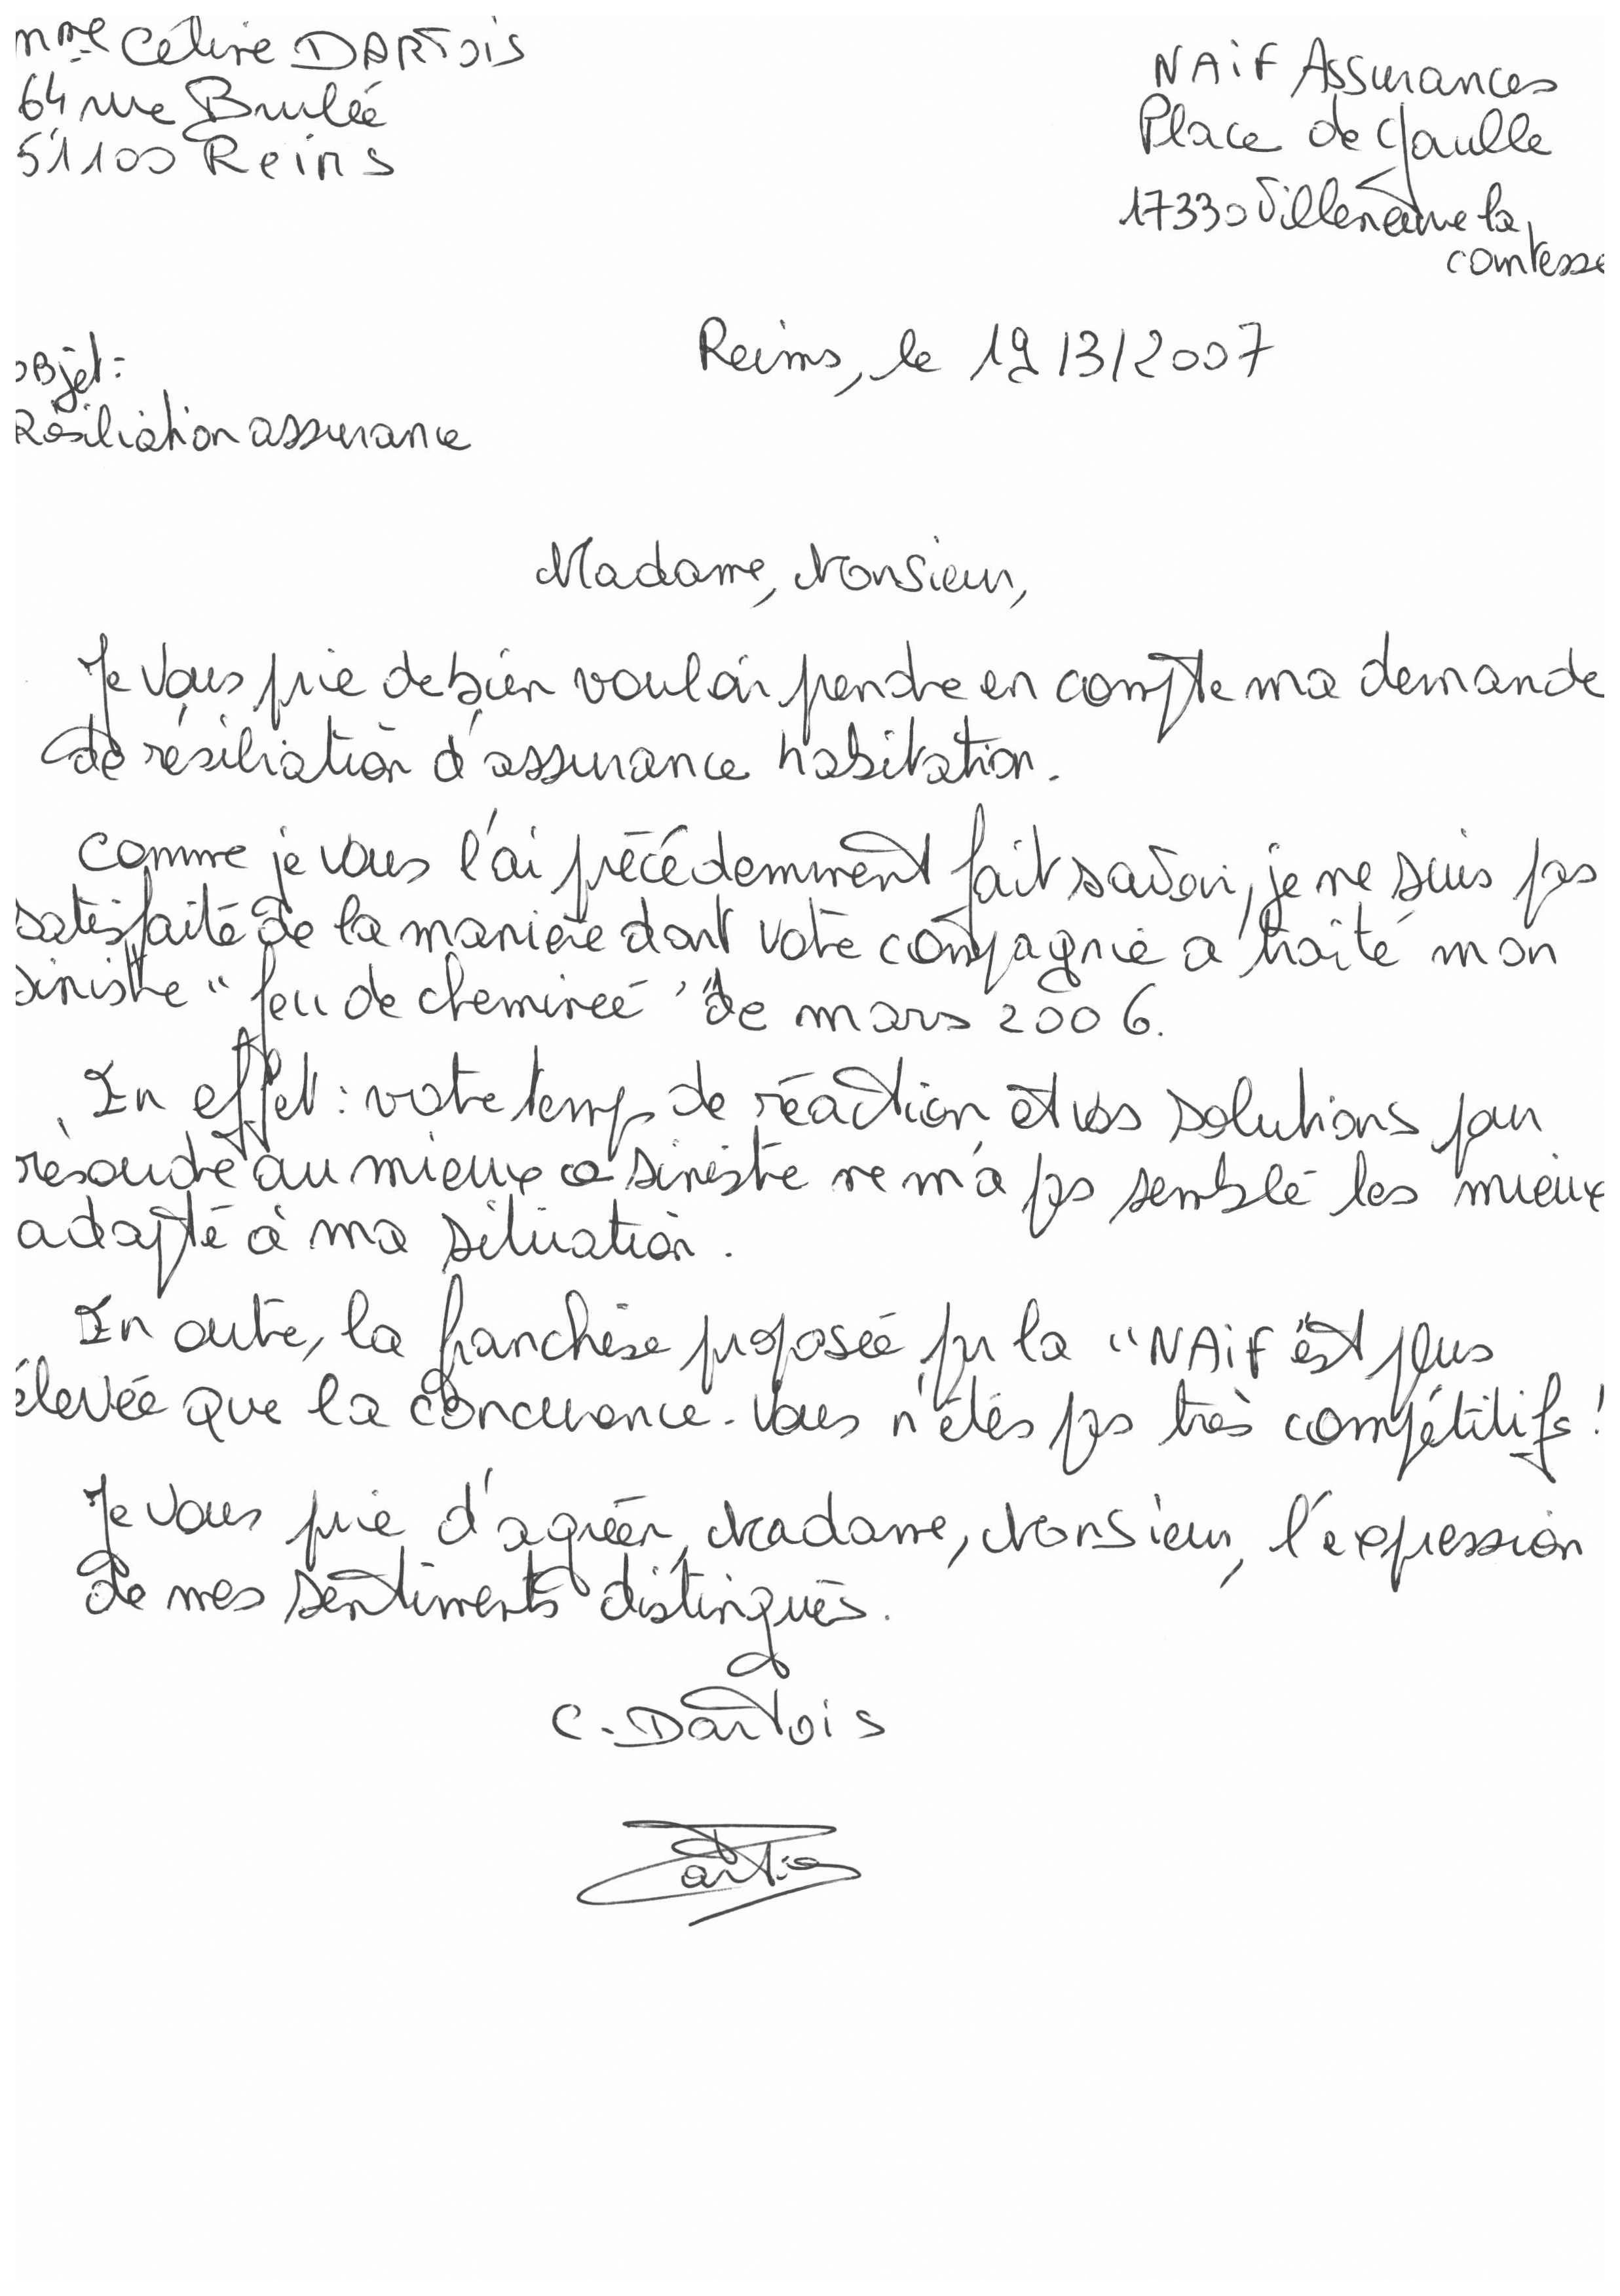 Mme Céline DARTOIS
64 rue Brulée
51100 Reims
NAIF Assurances
Place de Gaulle
17330 Villeneuve la
comtesse
Reims, le 19/3/2007
objet:
Résiliation assurance
Madame, Monsieur,
Je vous prie de bien vouloir prendre en compte ma demande
de résiliation d'assurance habitation.
Comme je vous l'ai précédemment fait savoir, je ne suis pas
satisfaite de la manière dont votre compagnie a traité mon
sinistre "feu de cheminée" de mars 2006.
En effet : votre temps de réaction et vos solutions pour
résoudre au mieux ce sinistre ne m'a pas semblé les mieux
adapté à ma situation.
En outre, la franchise proposée par la "NAIF" est plus
élevée que la concurrence. Vous n'étés pas très compétitifs !
Je vous prie d'agréer, Madame, Monsieur, l'expression
de mes sentiments distingués.
C. Dartois